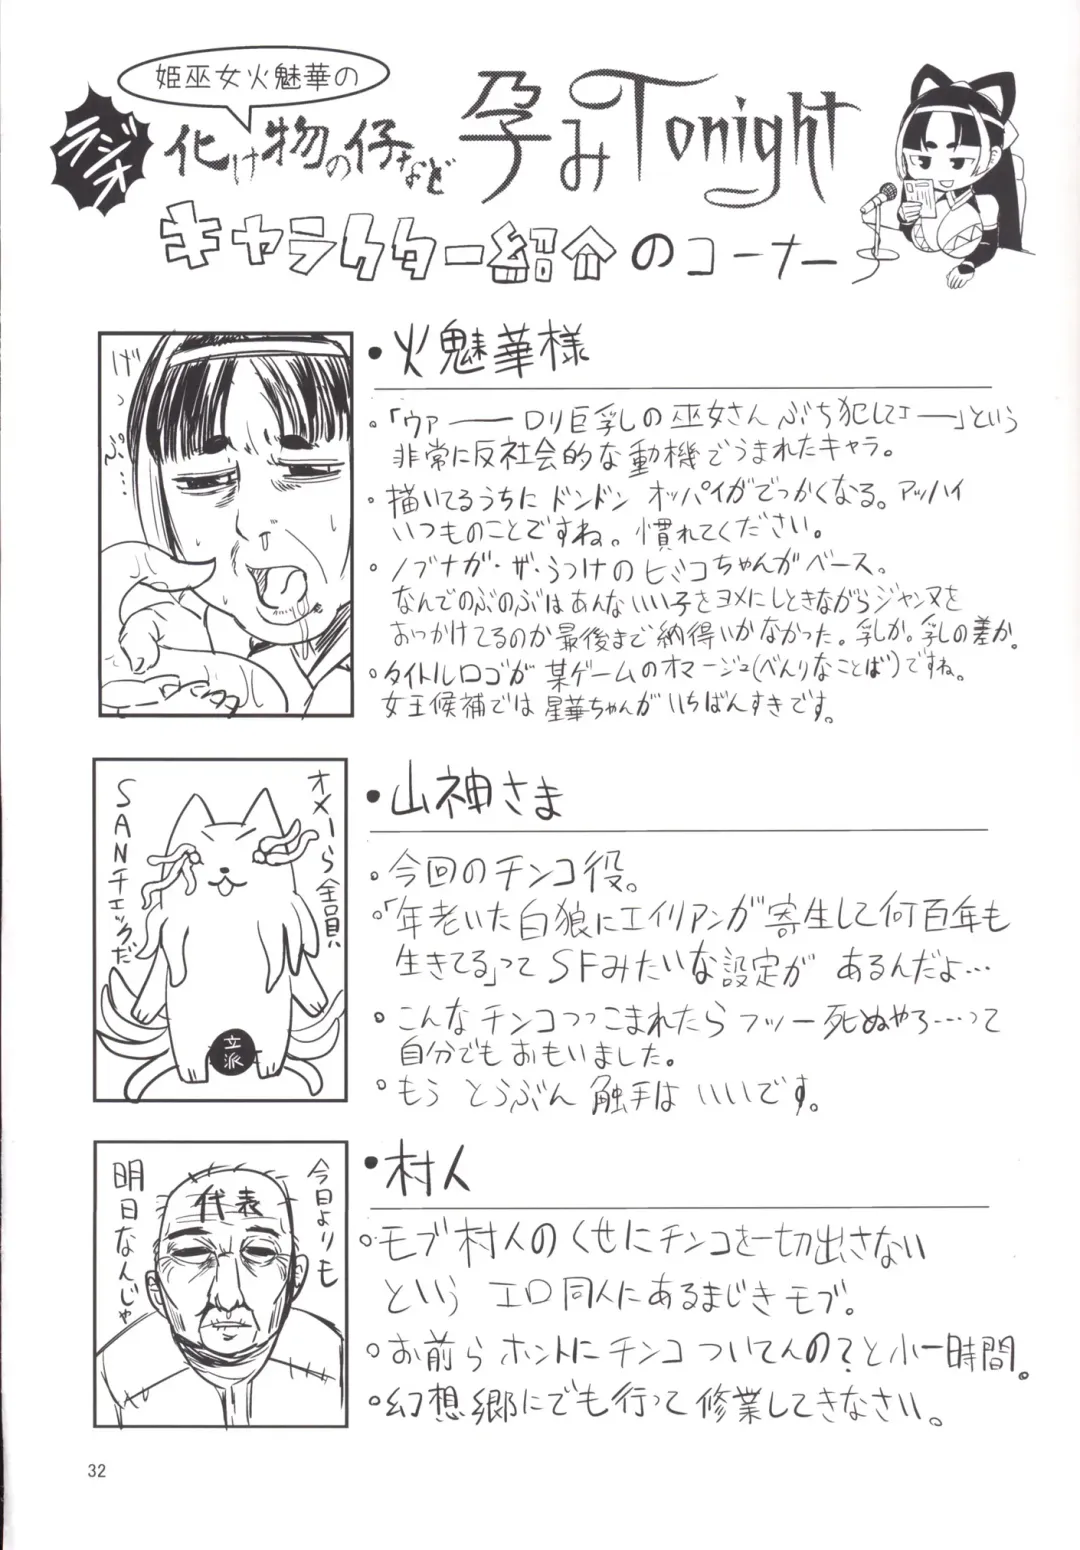 姫巫女火魅華の
ラジオ
化け物の仔など孕みTonight
キャラクター紹介のコーナー
・火魅華様
げっぷ…
。「ウァーーロリ巨乳の巫女さん ぶち犯してェー」という
非常に反社会的な動機でうまれたキャラ。
。描いてるうちに ドンドン オッパイがでっかくなる。アッハイ
いつものことですね。慣れてください。
。ノブナガ・ザ・うつけのヒミコちゃんがベース。
なんでのぶのぶはあんないい子をヨメにしときながらジャンヌを
おっかけてるのか最後まで納得いかなかった。乳しか。乳の差か。
。タイトルロゴが 某ゲームのオマージュ(べんりなことば)ですね。
女王候補では星華ちゃんがいちばんすきです。
・山神さま
オメーら全員
SANチェックだ
立派
。今回のチンコ役。
。「年老いた白狼にエイリアンが寄生して何百年も
生きてる」って SFみたいな設定が あるんだよ…
。こんなチンコつっこまれたらフツー死ぬやろ……って
自分でもおもいました。
。もう とうぶん 触手は いいです。
・村人
今日よりも
明日なんじゃ
代表
。モブ村人のくせにチンコを一切出さない
という エロ同人にあるまじきモブ。
。お前ら ホントにチンコ ついてんの?と小一時間。
。幻想郷にでも行って 修業してきなさい。
32